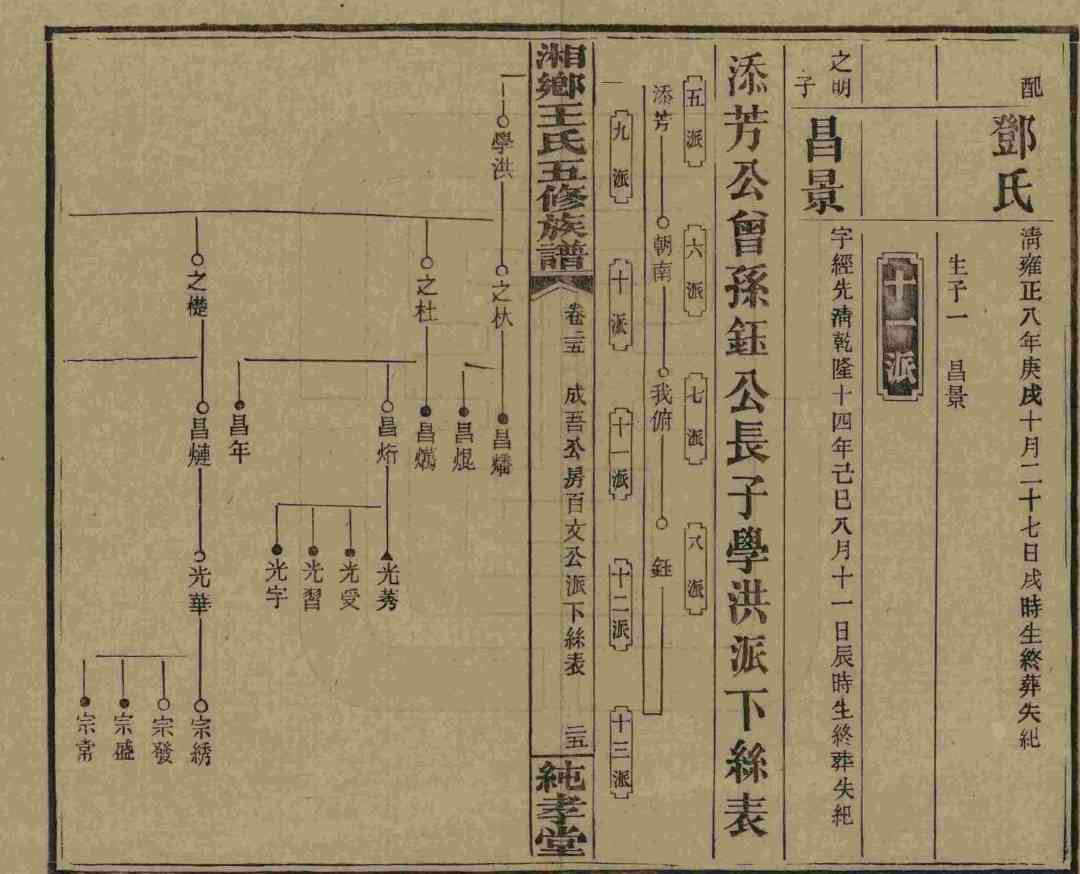 配
鄧氏
清雍正八年庚戌十月二十七日戌時生終葬失紀
生子一 昌景
十一派
之明子
昌景
字經先清乾隆十四年己巳八月十一日辰時生終葬失紀
添芳公曾孫鈺公長子學洪派下絲表
五派 六派 七派 八派
添芳 朝南 我俯 鈺
九派 十派 十一派 十二派 十三派
湘鄉王氏五修族譜
卷二五 成吾公房百文公派下絲表 二五
純孝堂
學洪 之杕 昌燔
昌焜
之杜 昌
昌炘 光莠
光受
光習
光宇
昌年
之 昌熾 光華 宗綉
宗發
宗盛
宗常